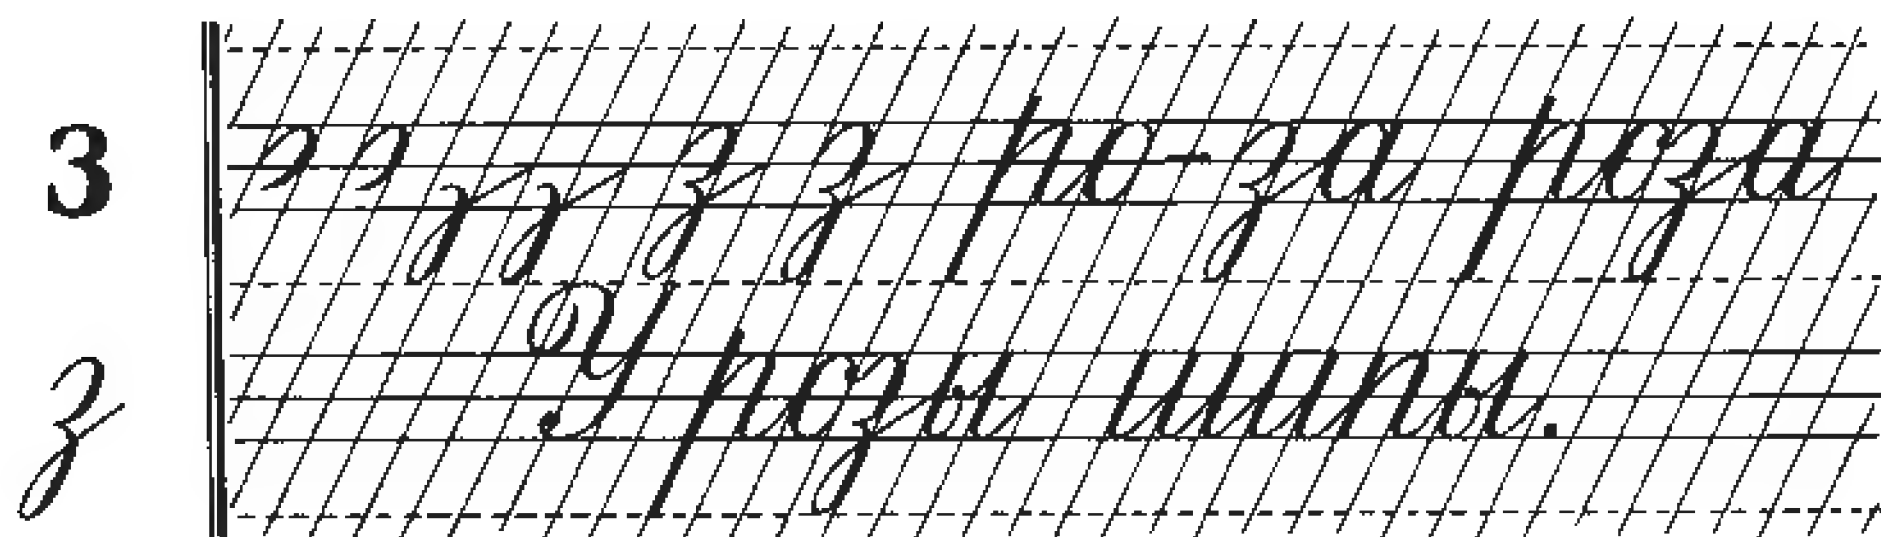 З з з ро-за роза
з У розы шипы.